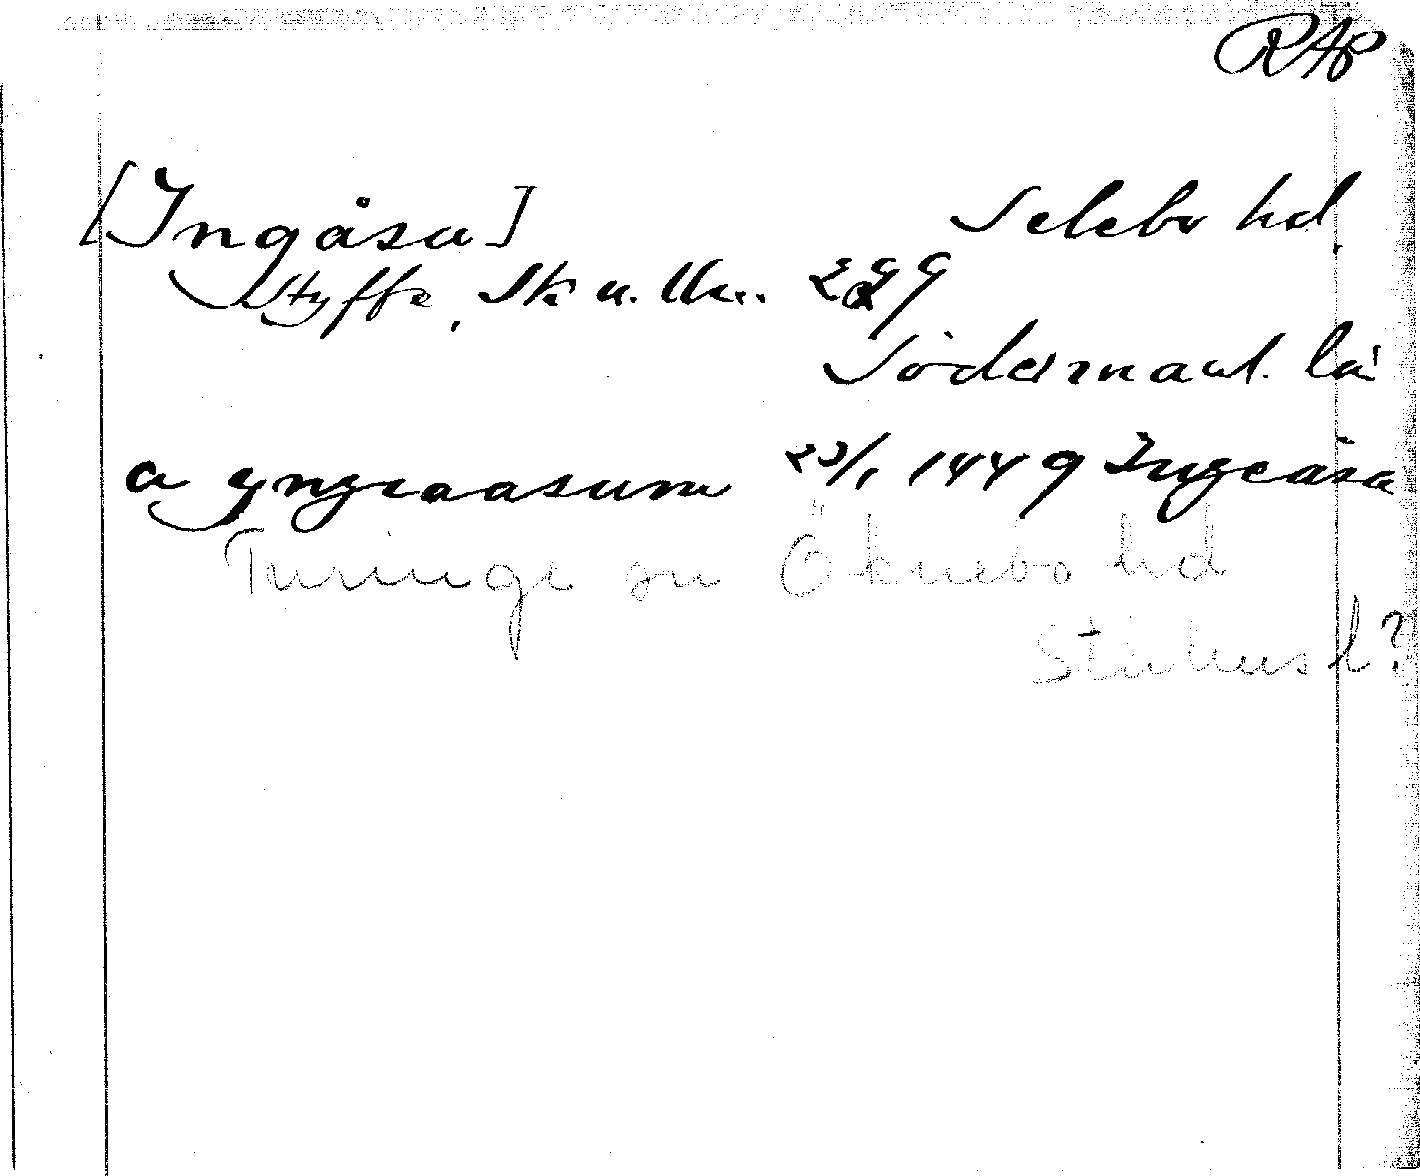 RAP
[Ingåsa] Selebo hd.
Styffe, Sk u. Un.. 299
Södermanl. lä
a yngeaasum 23/1 1449 Ingeåsa
Turinge sn Öknebo hd
Sthlms l?